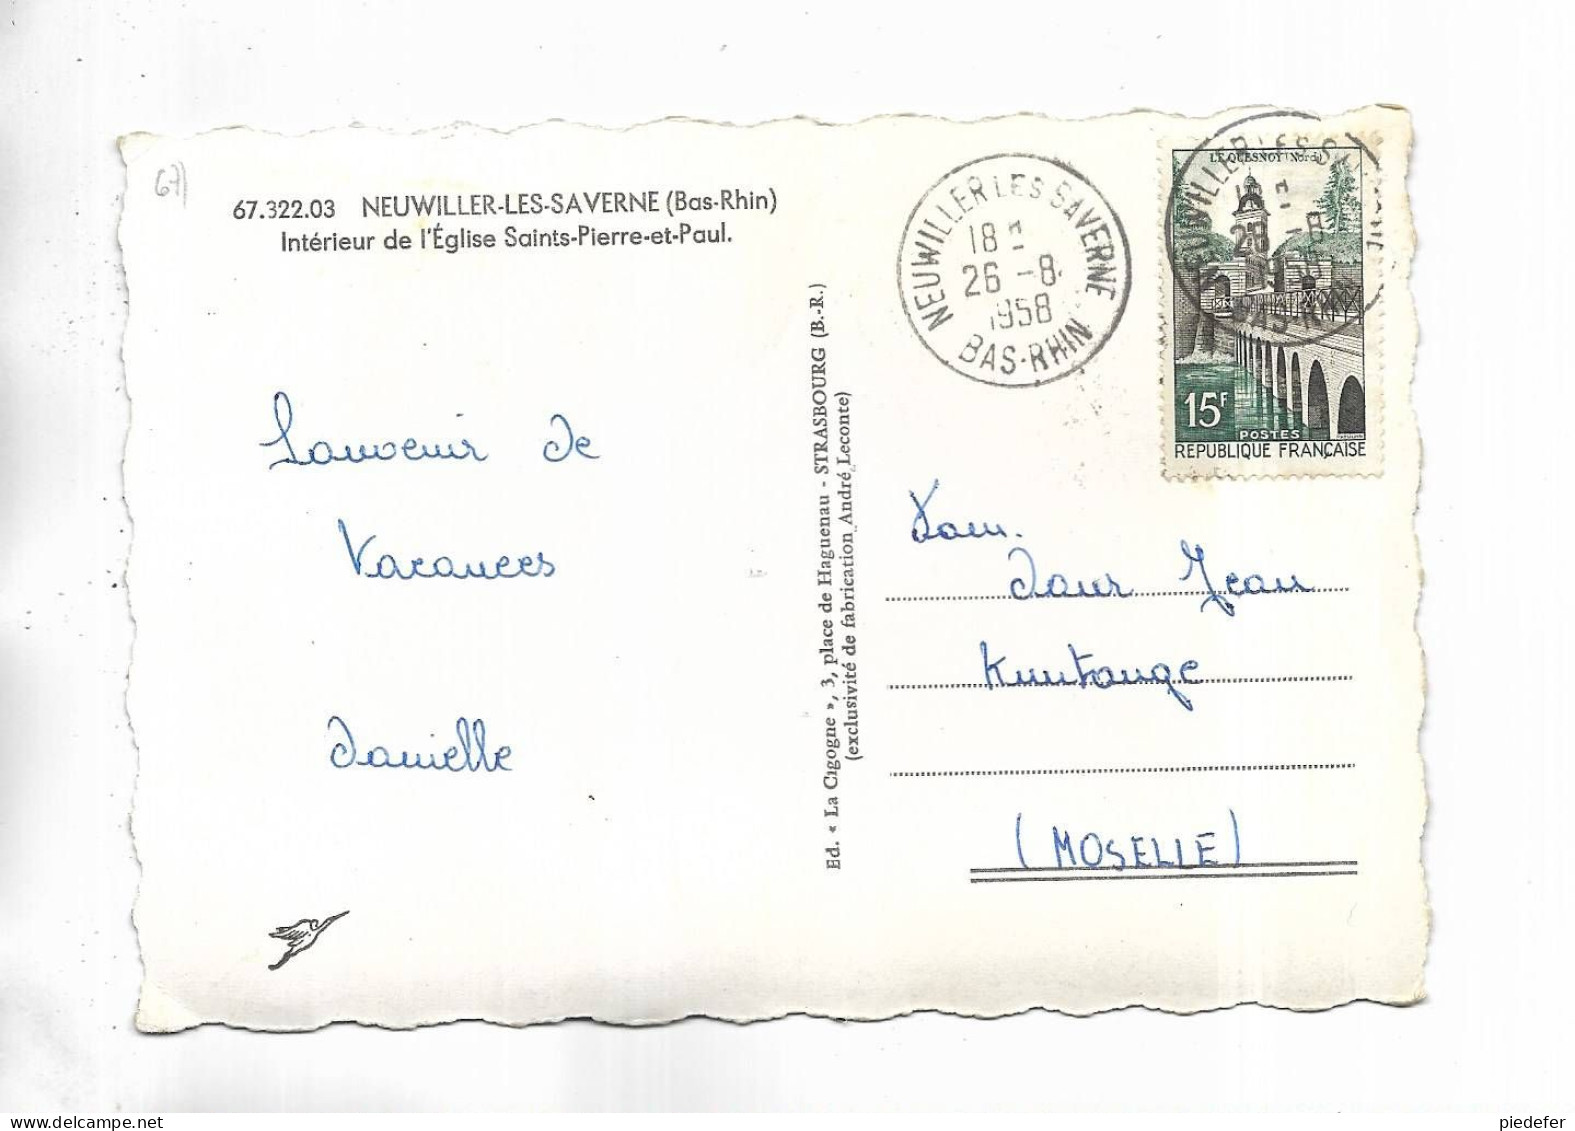 67
67.322.03 NEUWILLER-LES-SAVERNE (Bas-Rhin)
Intérieur de l'Église Saints-Pierre-et-Paul.
Souvenir de
Vacances
Danielle
Ed. « La Cigogne », 3, place de Haguenau - STRASBOURG (B.-R.)
(exclusivité de fabrication André Leconte)
NEUWILLER LES SAVERNE
18 H
26 -8
1958
BAS-RHIN
LE QUESNOY (Nord)
15F
POSTES
REPUBLIQUE FRANÇAISE
NEUWILLER LES SA
18 H
26 -8
1958
BAS-RHIN
Fam.
Daur Jean
Kuntange
(MOSELLE)
piedefer